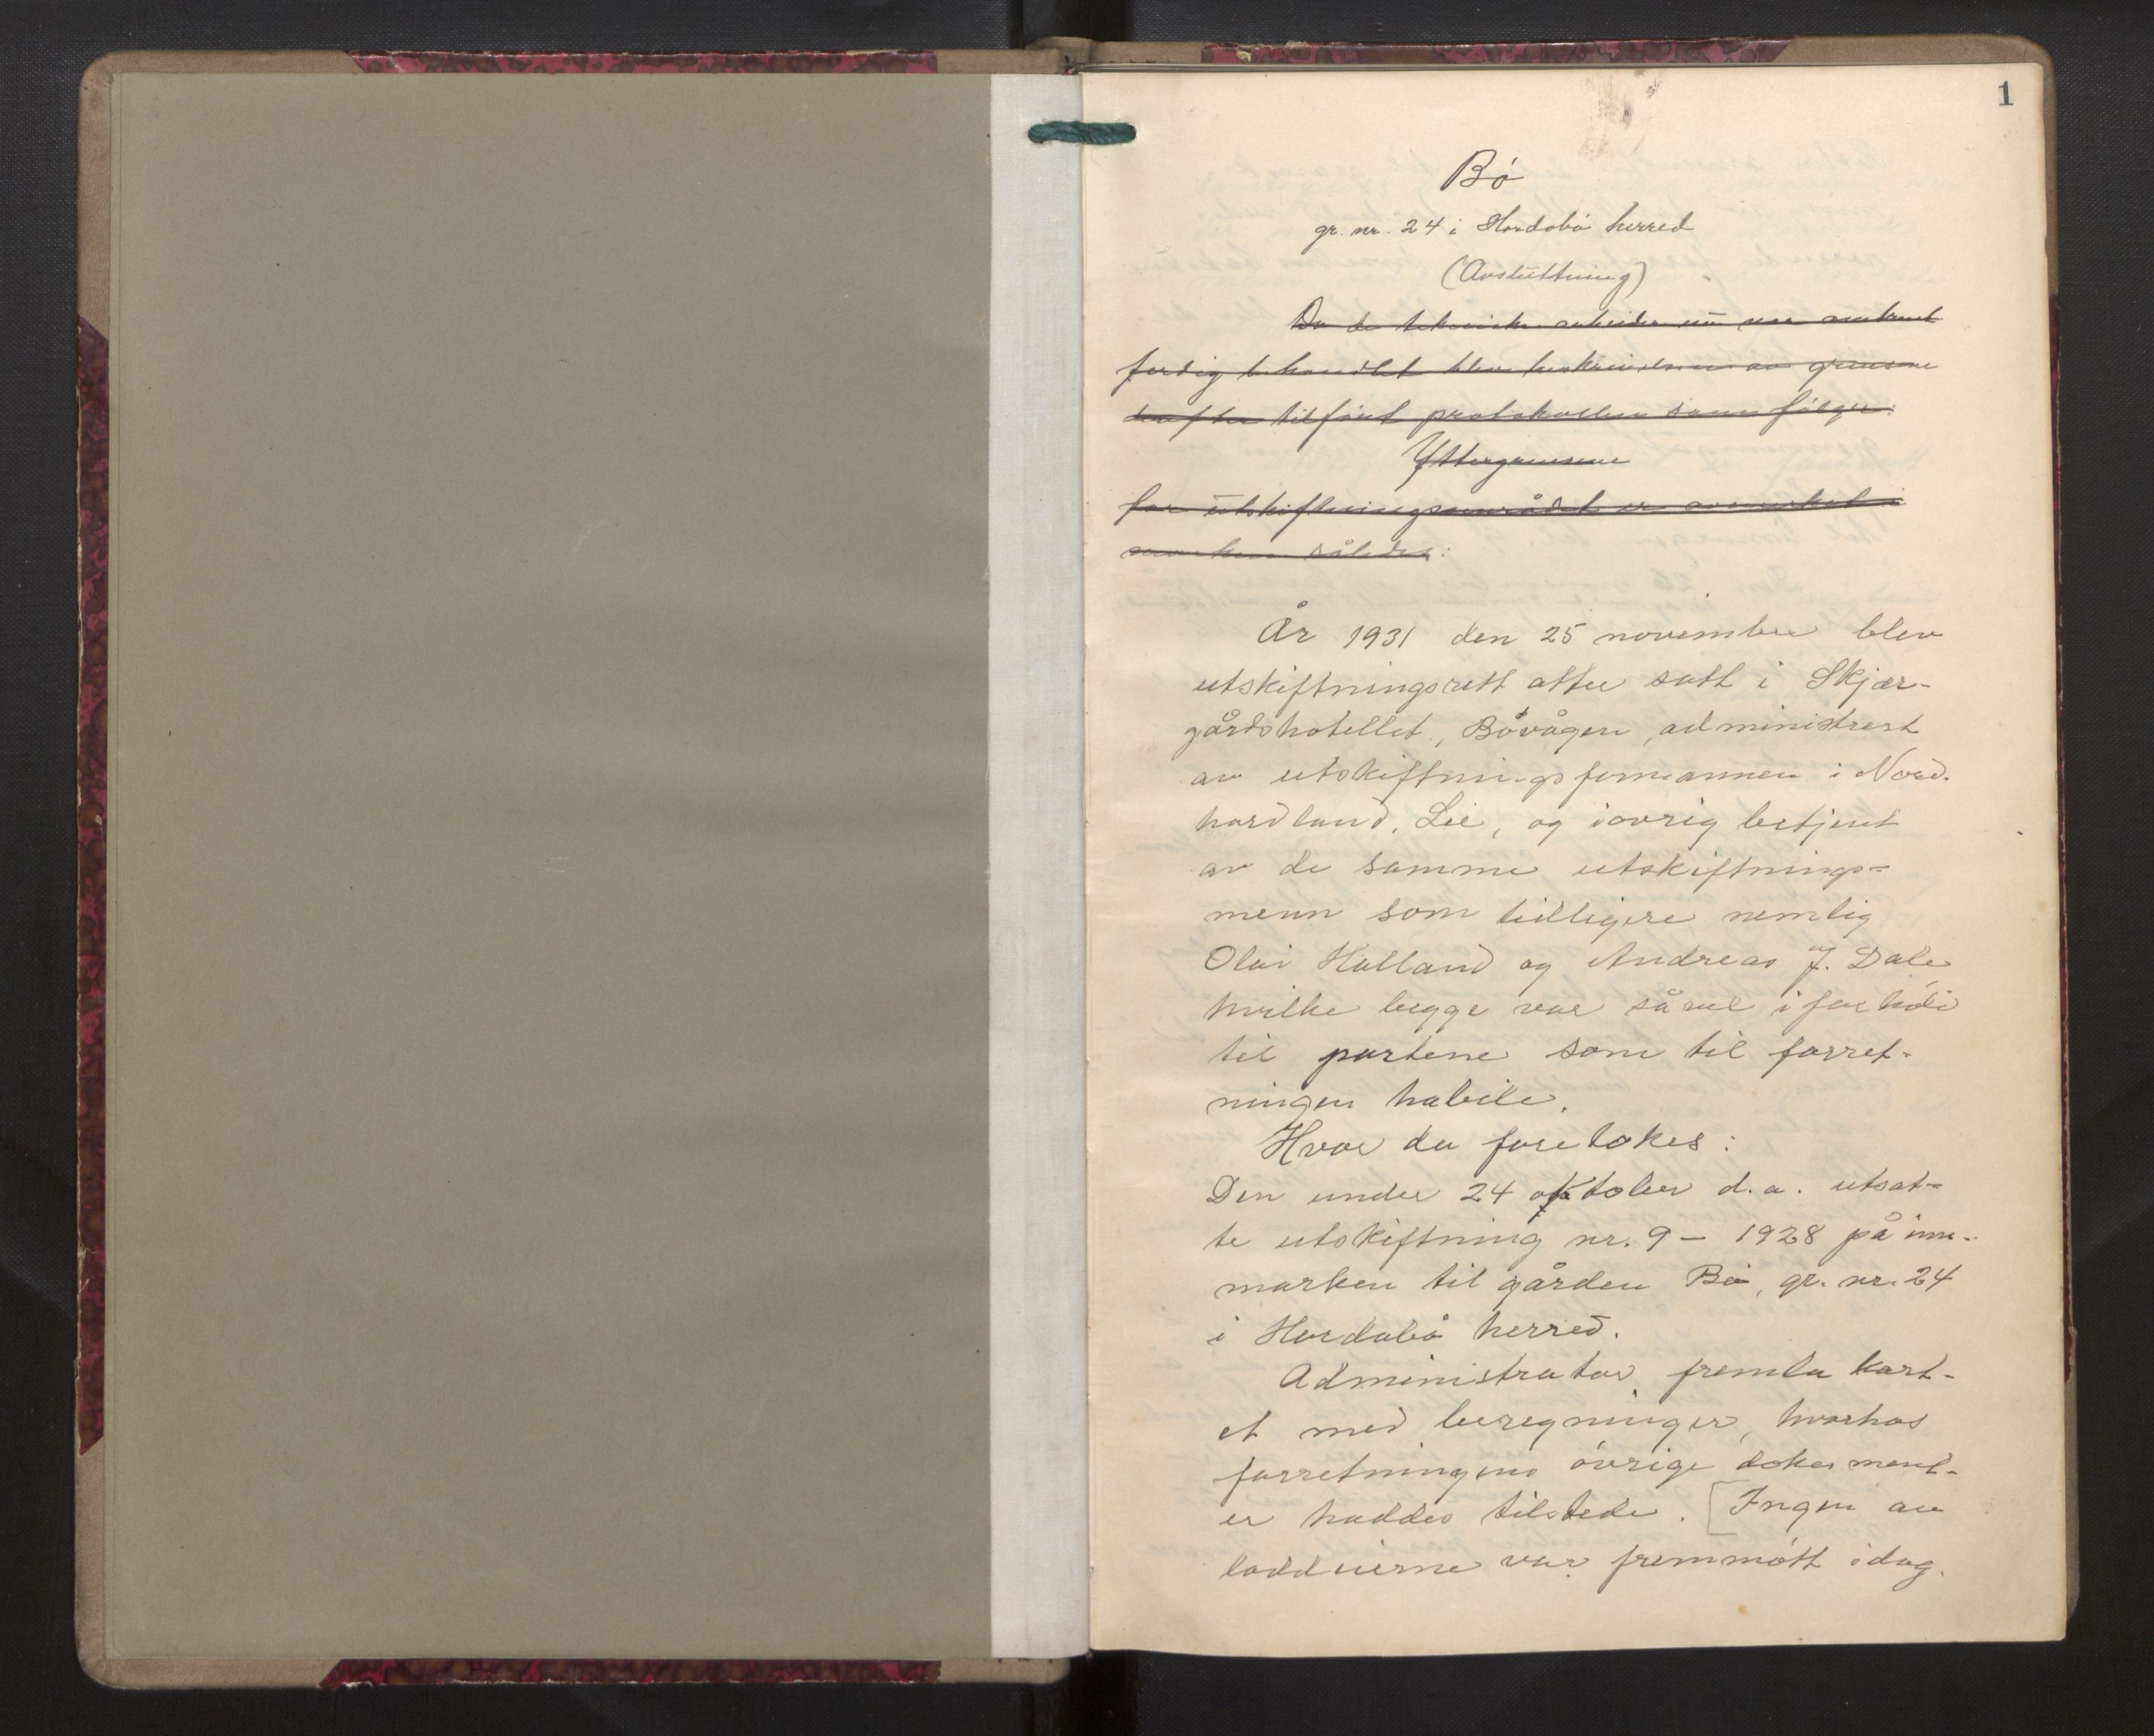 1
Bö
gr. nr. 24 i Hordabö herred
(Avslutning)
Da de tekniske arbeider nu var omtrent
ferdig behandlet blev beskrivelsen av grensene
derefter tilført protokollen som følger:
Yttergrensene
for utskiftningsområdet er avmerket i
marken således:
År 1931 den 25 november blev
utskiftningsrett atter satt i Skjær-
gårdshotellet, Bövågen, administrert
av utskiftningsformannen i Nord-
hordland, Lie, og iøvrig betjent
av de samme utskiftnings-
menn som tidligere nemlig
Olai Halland og Andreas J. Dale
hvilke begge var såvel i forhold
til partene som til forret-
ningen habile.
Hvor da foretokes:
Den under 24 oktober d.a. utsat-
te utskiftning nr. 9 – 1928 på inn-
marken til gården Bö, gr. nr. 24
i Hordabö herred.
Administrator fremla kart-
et med beregninger, hvorhos
forretningens övrige dokument-
er haddes tilstede. [Ingen av
loddeierne var fremmött idag.